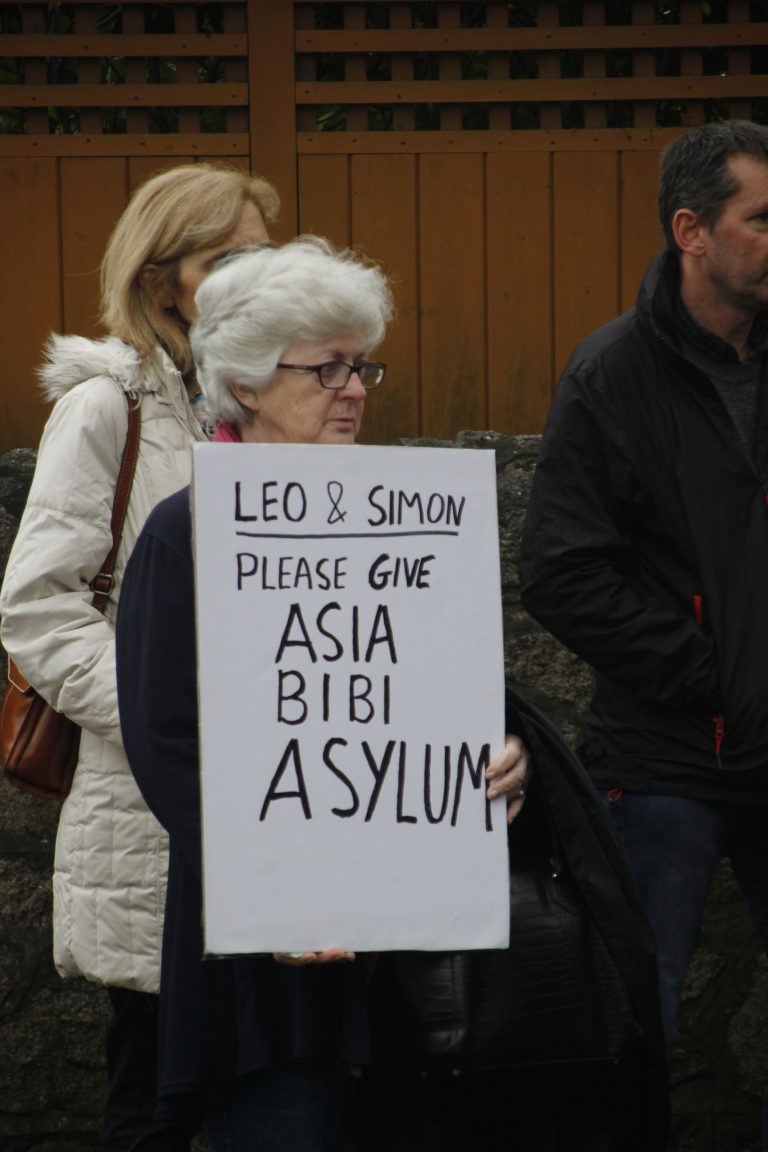 LEO & SIMON
PLEASE GIVE
ASIA
BIBI
ASYLUM